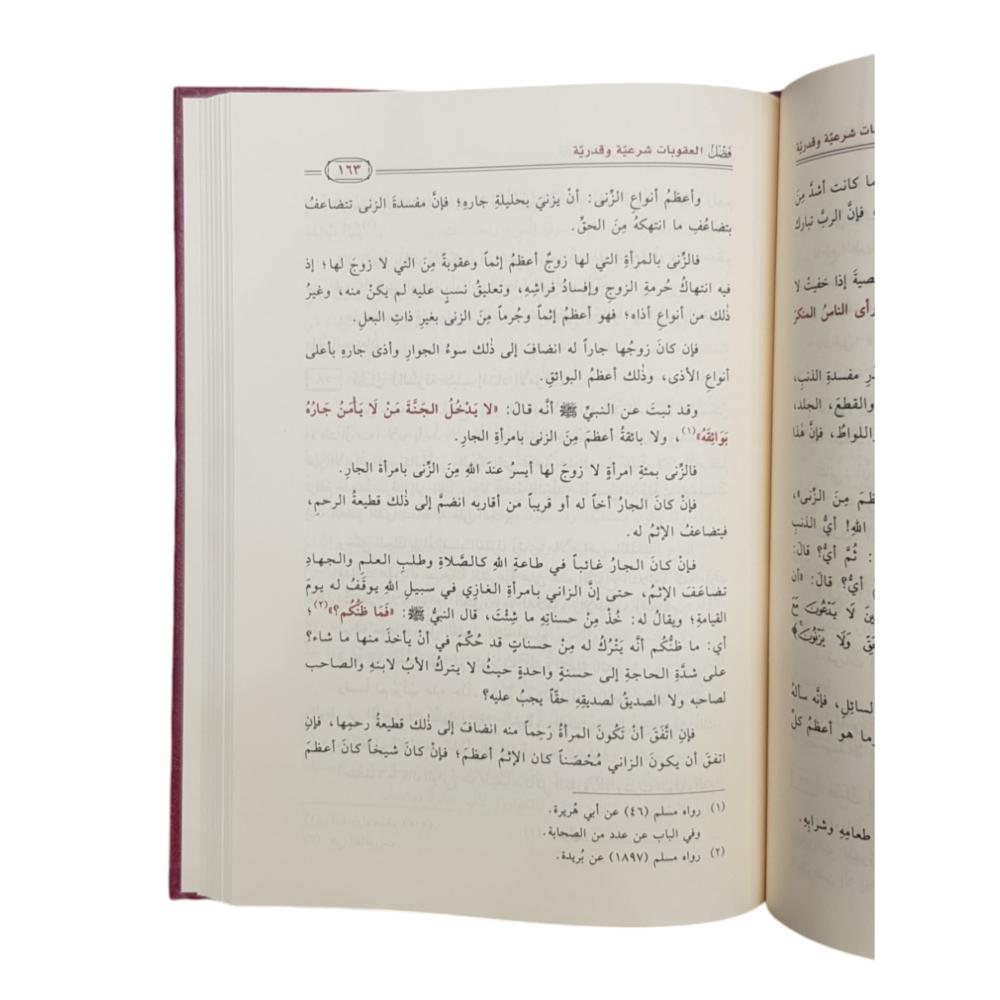 فَصْلُ العقوبات شرعيّة وقدريّة
١٦٣
وأعظمُ أنواعِ الزِّنى: أنْ يزنيَ بحليلةِ جارهِ؛ فإنَّ مفسدةَ الزنى تتضاعفُ
بتضاعُفِ ما انتهكهُ مِنَ الحقِّ.
فالزِّنى بالمرأةِ التي لها زوجٌ أعظمُ إثماً وعقوبةً مِنَ التي لا زوجَ لها؛ إذ
فيه انتهاكُ حُرمةِ الزوجِ وإفسادُ فراشِهِ، وتعليقُ نسبٍ عليه لم يكنْ منه، وغيرُ
ذٰلك من أنواعِ أذاه؛ فهو أعظمُ إثماً وجُرماً مِنَ الزنى بغيرِ ذاتِ البعلِ.
فإن كانَ زوجُها جاراً له انضافَ إلى ذٰلك سوءُ الجوارِ وأذى جارِهِ بأعلى
أنواعِ الأذى، وذٰلك أعظمُ البوائقِ.
وقد ثبتَ عن النبيِّ ﷺ أنَّه قالَ: «لا يَدْخُلُ الجَنَّةَ مَنْ لَا يَأْمَنُ جَارُهُ
بَوَائِقَهُ»(١)، ولا بائقةُ أعظمَ مِنَ الزنى بامرأةِ الجارِ.
فالزِّنى بمئةِ امرأةٍ لا زوجَ لها أيسرُ عندَ اللهِ مِنَ الزِّنى بامرأة الجارِ.
فإنْ كانَ الجارُ أخاً له أو قريباً من أقاربه انضمَّ إلى ذٰلك قطيعةُ الرحمِ،
فيتضاعفُ الإثمُ له.
فإنْ كانَ الجارُ غائباً في طاعةِ اللهِ كالصَّلاةِ وطلبِ العلمِ والجهادِ
تضاعَفَ الإثمُ، حتى إنَّ الزاني بامرأةِ الغازي في سبيلِ اللهِ يوقَفُ له يومَ
القيامةِ؛ ويقالُ له: خُذْ مِنْ حسناتِهِ ما شِئْتَ، قال النبيُّ ﷺ: «فَمَا ظَنُّكُم؟»(٢)؛
أي: ما ظنُّكُم أنَّه يَتْرُكُ له مِنْ حسناتٍ قد حُكِّمَ في أنْ يأخذَ منها ما شاء؟
على شدَّةِ الحاجةِ إلى حسنةٍ واحدةٍ حيثُ لا يتركُ الأبُ لابنهِ والصاحب
لصاحبه ولا الصديقُ لصديقِهِ حقّاً يجبُ عليه؟
فإنِ اتَّفَقَ أنْ تَكُونَ المرأةُ رَحِماً منه انضافَ إلى ذٰلك قطيعةُ رحمِها، فإنِ
اتفقَ أن يكونَ الزاني مُحْصَناً كان الإثم أعظمَ؛ فإنْ كانَ شيخاً كانَ أعظمَ
(١) رواه مسلم (٤٦) عن أبي هُريرة.
وفي الباب عن عدد من الصحابة.
(٢) رواه مسلم (١٨٩٧) عن بُريدة.
ـات شرعيّة وقدريّة
ما كانت أشدَّ مِنَ
فإنَّ الربَّ تبارك
صيةَ إذا خفيتْ لا
رأى الناسُ المنكرَ
ـدرِ مفسدةِ الذنبِ،
والقطعَ، الجلد،
اللواطُ، فإنَّ هٰذا
ـظمَ مِنَ الزِّنى»،
اللهِ! أيُّ الذنبِ
: ثُمَّ أيٌّ؟ قالَ:
أيٌّ؟ قالَ: «أن
ـينَ لَا يَدْعُونَ مَعَ
ـقِّ وَلَا يَزْنُونَ﴾
السائِلِ، فإنَّه سألهُ
وما هو أعظمُ كلِّ
طعامِهِ وشرابِهِ.